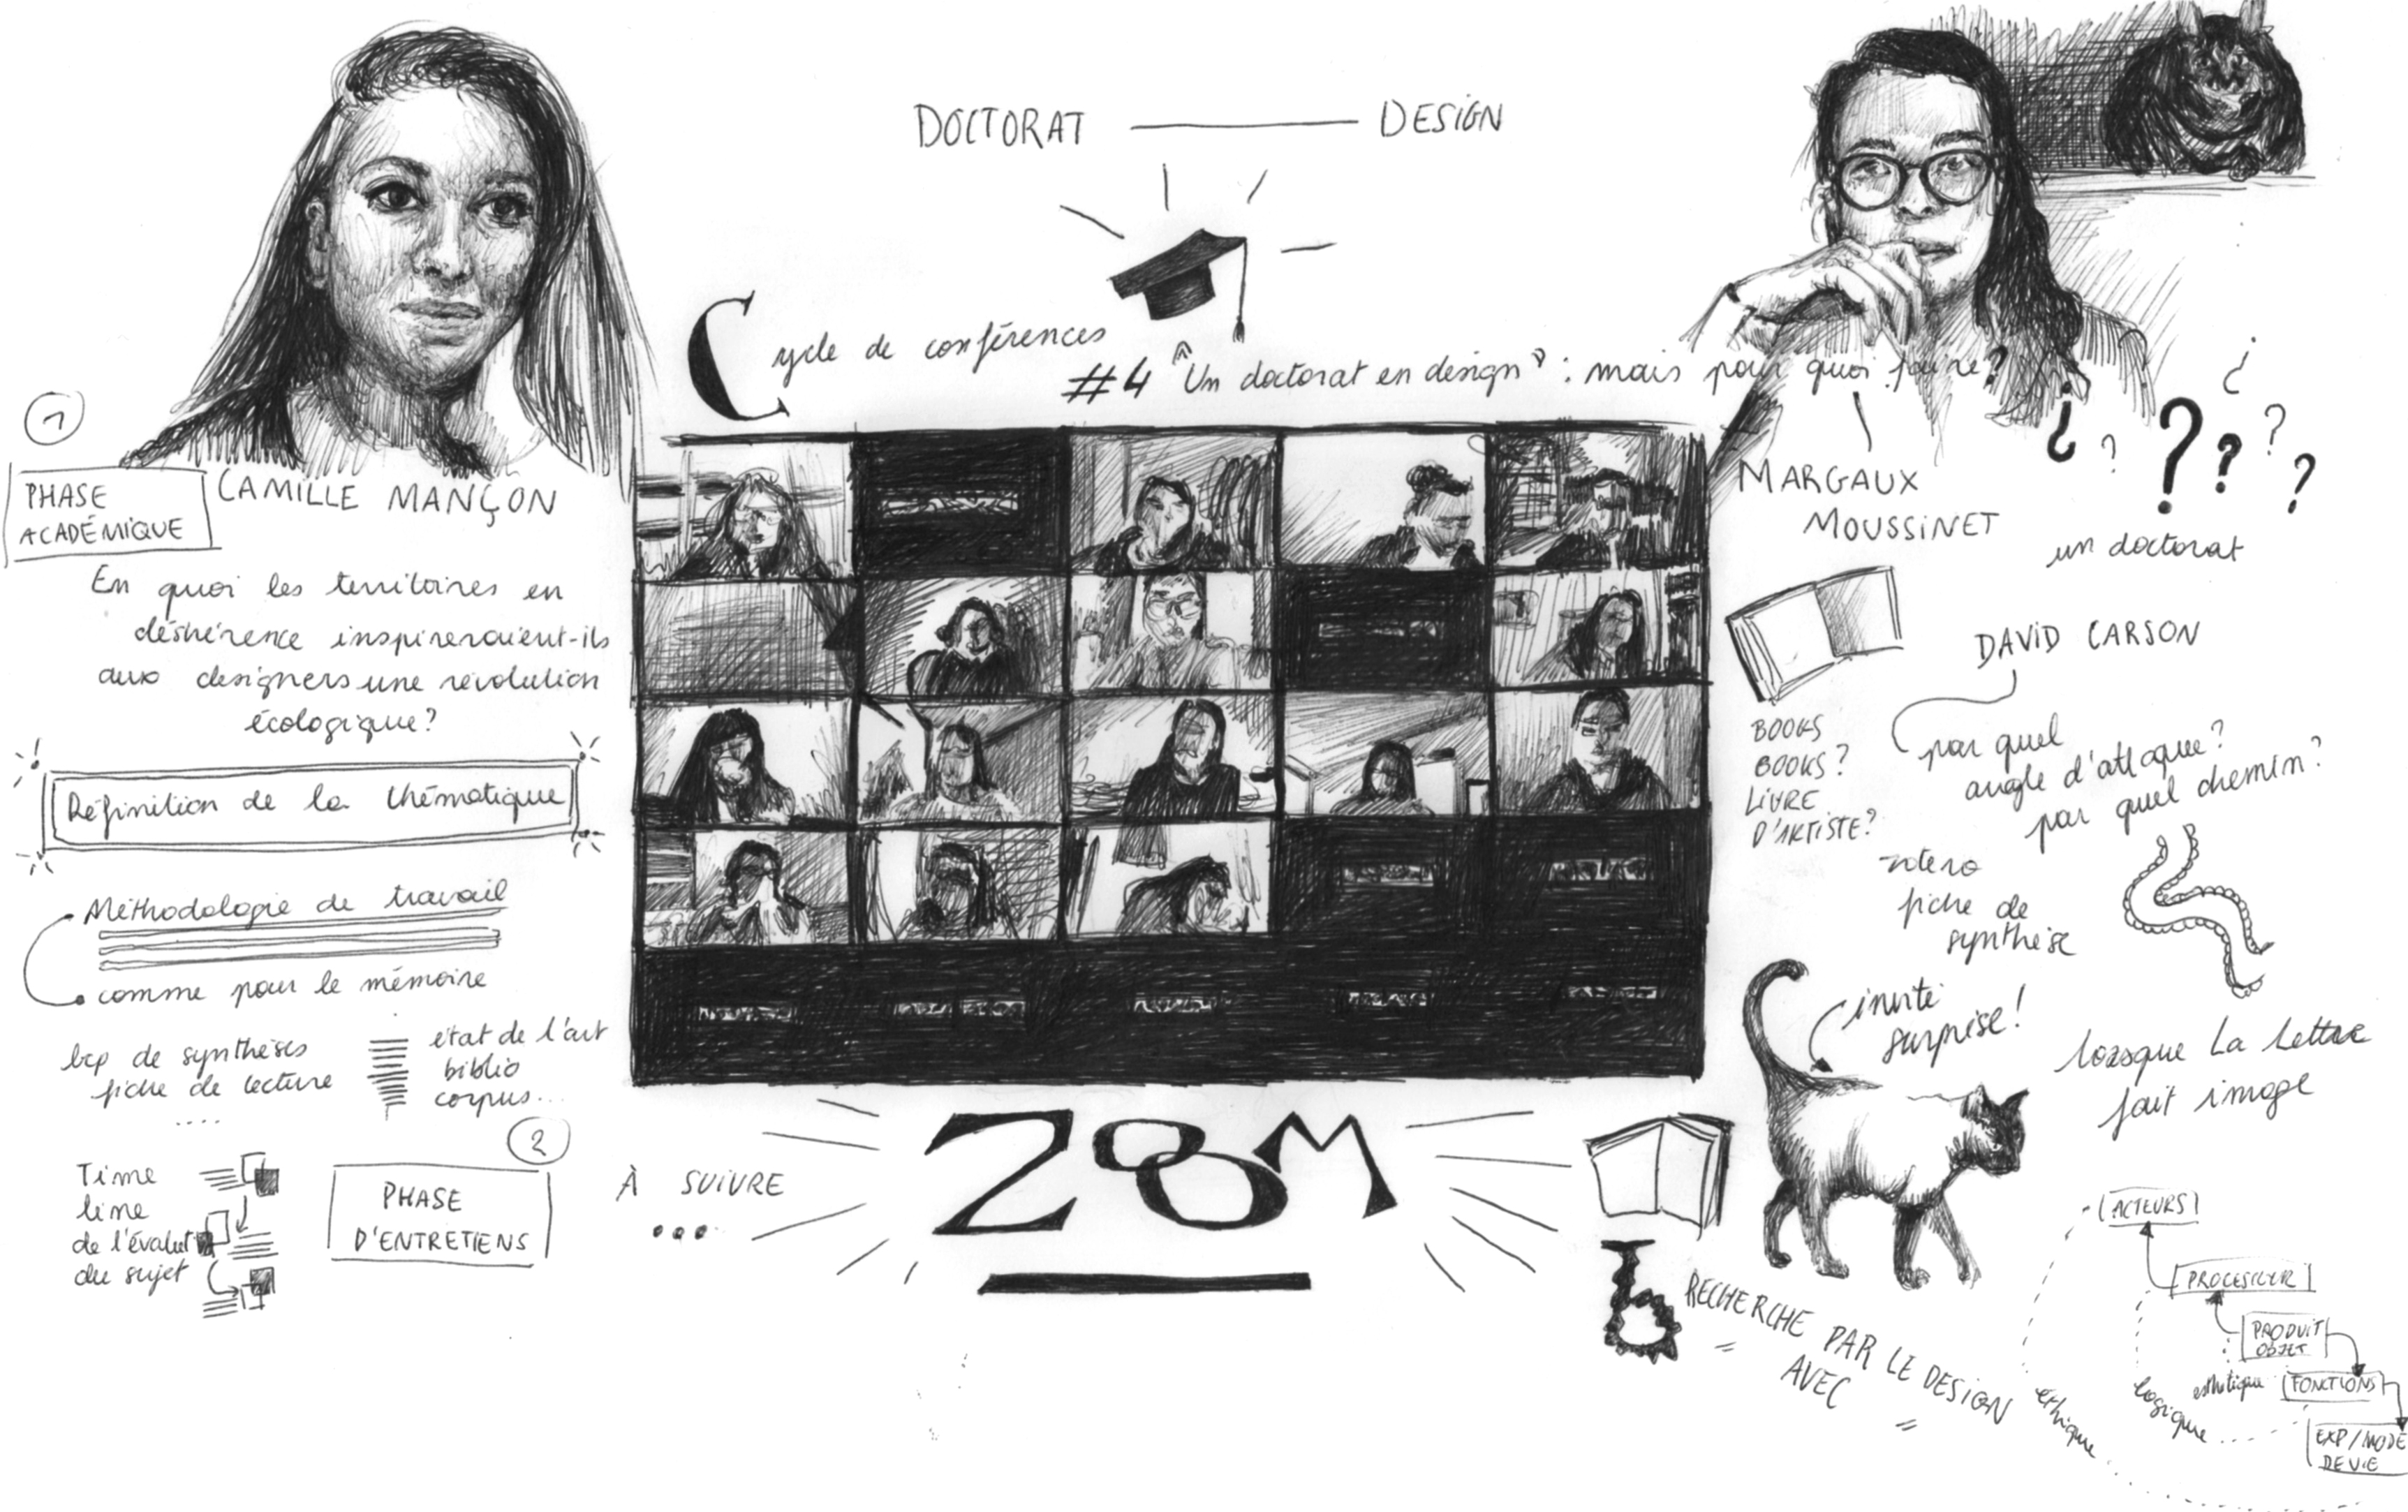 DOCTORAT — DESIGN
Cycle de conférences
#4 "Un doctorat en design" : mais pour quoi faire?
1
PHASE
ACADÉMIQUE
CAMILLE MANÇON
En quoi les territoires en
déshérence inspireraient-ils
aux designers une révolution
écologique?
Définition de la thématique
Méthodologie de travail
comme pour le mémoire
bcp de synthèses
fiche de lecture
....
état de l'art
biblio
corpus...
2
Time
line
de l'évolut
du sujet
PHASE
D'ENTRETIENS
À SUIVRE
...
ZOOM
MARGAUX
MOUSSINET
¿ ? ? ? ¿ ? ?
un doctorat
DAVID CARSON
par quel
angle d'attaque?
par quel chemin?
BOOKS
BOOKS?
LIVRE
D'ARTISTE?
zotero
fiche de
synthèse
invité
surprise!
lorsque La Lettre
fait image
b
RECHERCHE PAR LE DESIGN
= AVEC =
ACTEURS
PRODUIT
OBJET
FONCTIONS
EXP/MODE
DE VIE
éthique
logique
esthétique